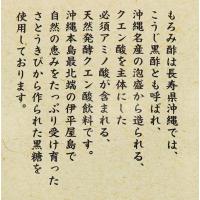 もろみ酢は長寿県沖縄では、
こうじ黒酢とも呼ばれ、
沖縄名産の泡盛から造られる、
クエン酸を主体にした
必須アミノ酸が含まれる、
天然発酵クエン酸飲料です。
沖縄本島最北端の伊平屋島で
自然の恵みをたっぷり受け育った
さとうきびから作られた黒糖を
使用しております。